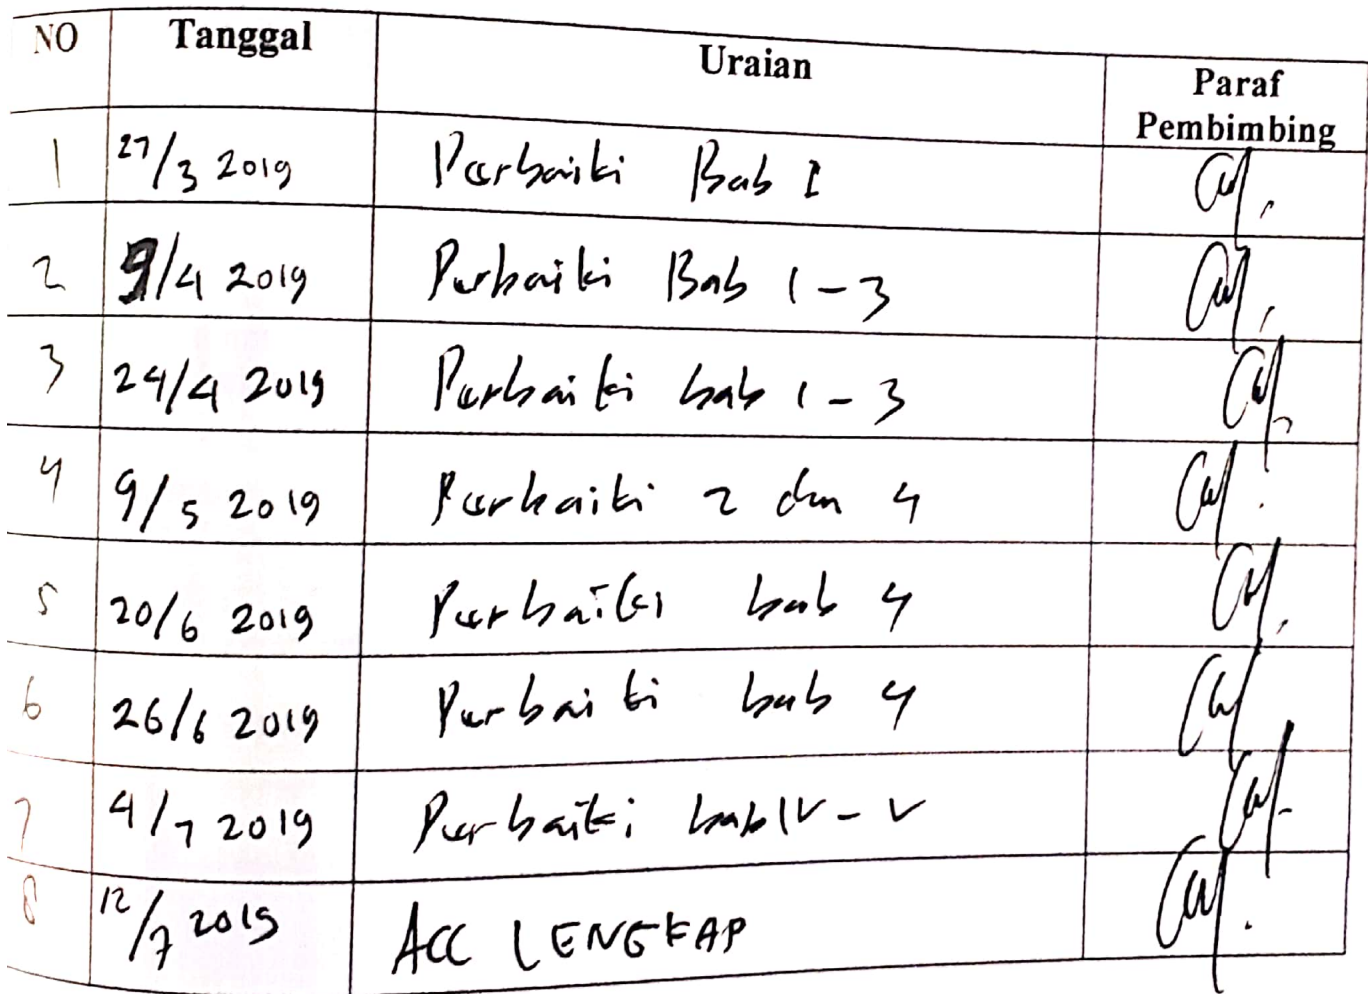 NO Tanggal Uraian Paraf Pembimbing
1 27/3 2019 Perbaiki Bab I
2 9/4 2019 Perbaiki Bab 1-3
3 24/4 2019 Perbaiki bab 1-3
4 9/5 2019 Perbaiki 2 dan 4
5 20/6 2019 Perbaiki bab 4
6 26/6 2019 Perbaiki bab 4
7 4/7 2019 Perbaiki bab IV-V
8 12/7 2019 ACC LENGKAP